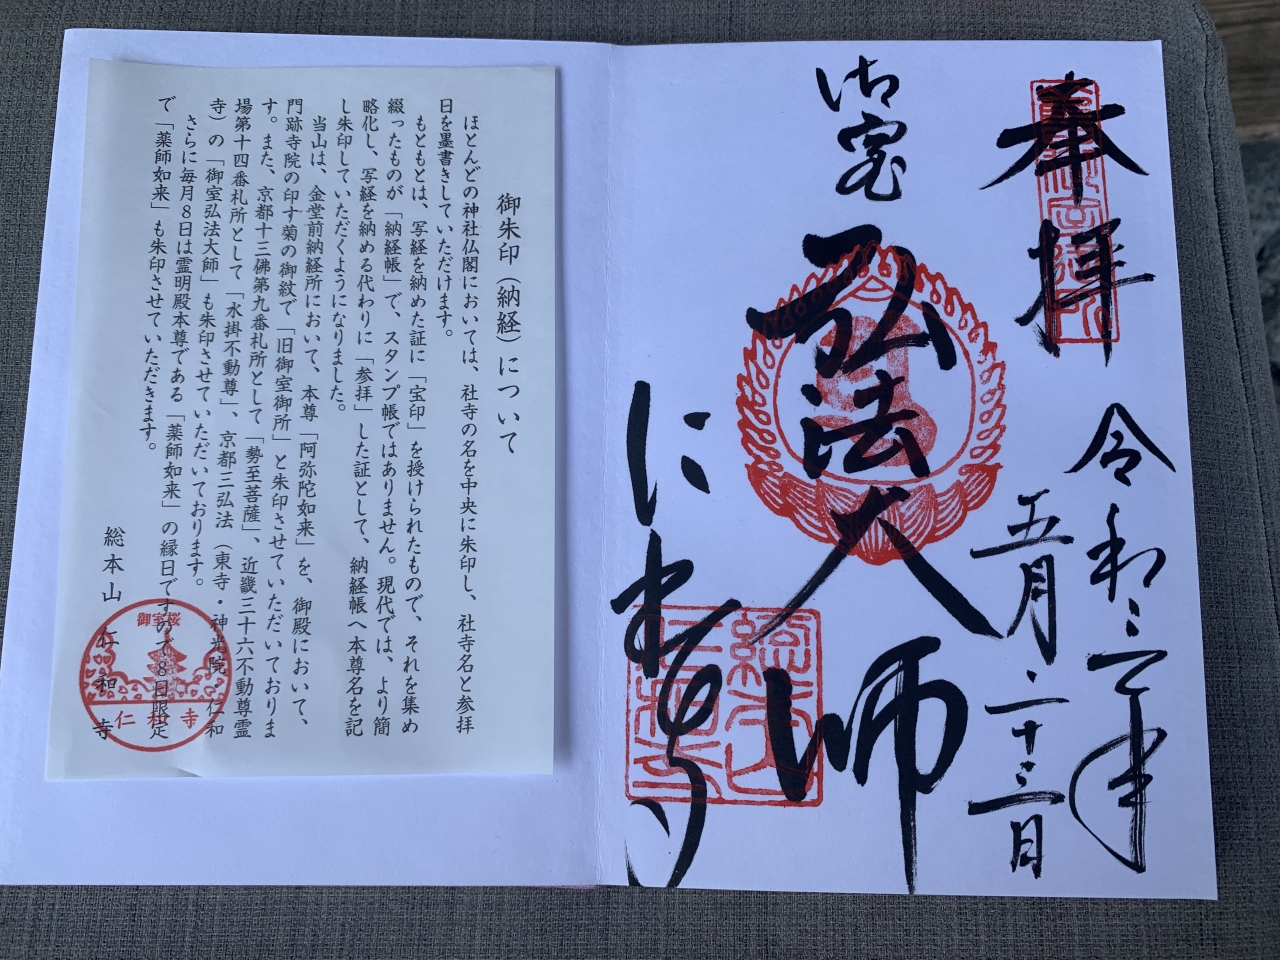 奉拝
令和三年
五月二十三日
御室
弘法大師
にわうじ
御朱印（納経）について
ほとんどの神社仏閣においては、社寺の名を中央に朱印し、社寺名と参拝
日を墨書きしていただけます。
もともとは、写経を納めた証に「宝印」を授けられたもので、それを集め
綴ったものが「納経帳」で、スタンプ帳ではありません。現代では、より簡
略化し、写経を納める代わりに「参拝」した証として、納経帳へ本尊名を記
し朱印していただくようになりました。
当山は、金堂前納経所において、本尊「阿弥陀如来」を、御殿において、
門跡寺院の印す菊の御紋で「旧御室御所」と朱印させていただいておりま
す。また、京都十三佛第九番札所として「勢至菩薩」、近畿三十六不動尊霊
場第十四番札所として「水掛不動尊」、京都三弘法（東寺・神光院・仁和
寺）の「御室弘法大師」も朱印させていただいております。
さらに毎月８日は霊明殿本尊である「薬師如来」の縁日ですので８日限定
で「薬師如来」も朱印させていただきます。
総本山　仁和寺
御室桜
仁和寺